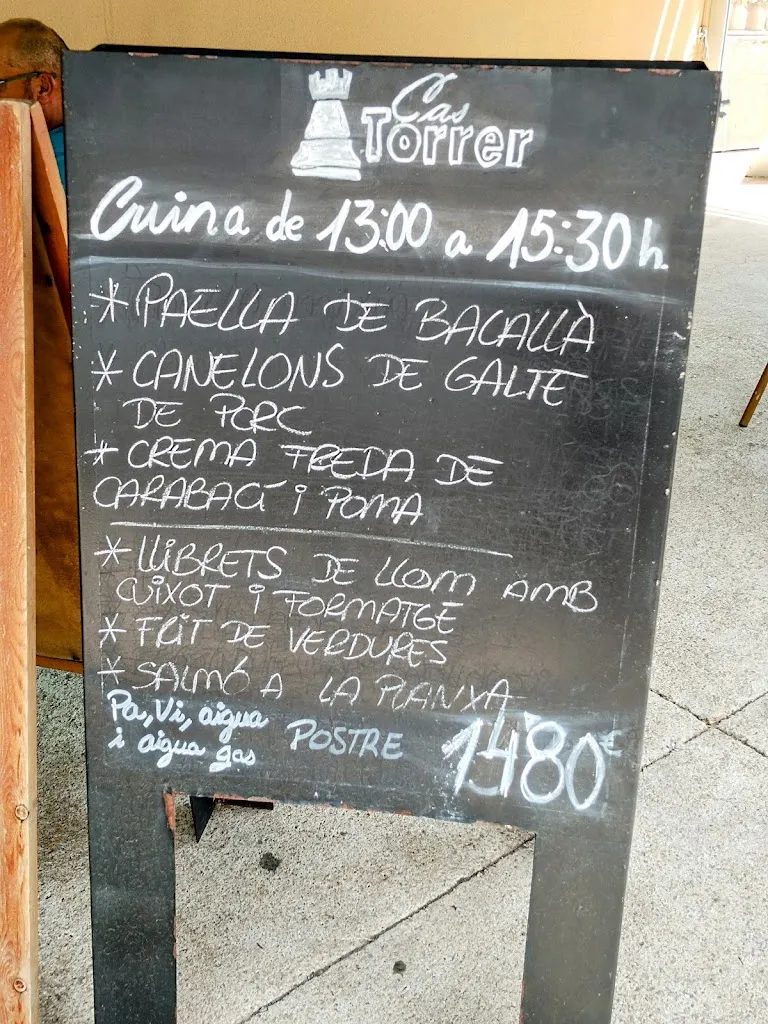 Cas
Torrer
Cuina de 13:00 a 15:30h.
* PAELLA DE BACALLÀ
* CANELONS DE GALTE
DE PORC
* CREMA FREDA DE
CARABACÍ i POMA
* LLIBRETS DE LLOM AMB
CUIXOT I FORMATGE
* FRIT DE VERDURES
* SALMÓ A LA PLANXA
Pa, Vi, aigua
i aigua gas
POSTRE
14'80€